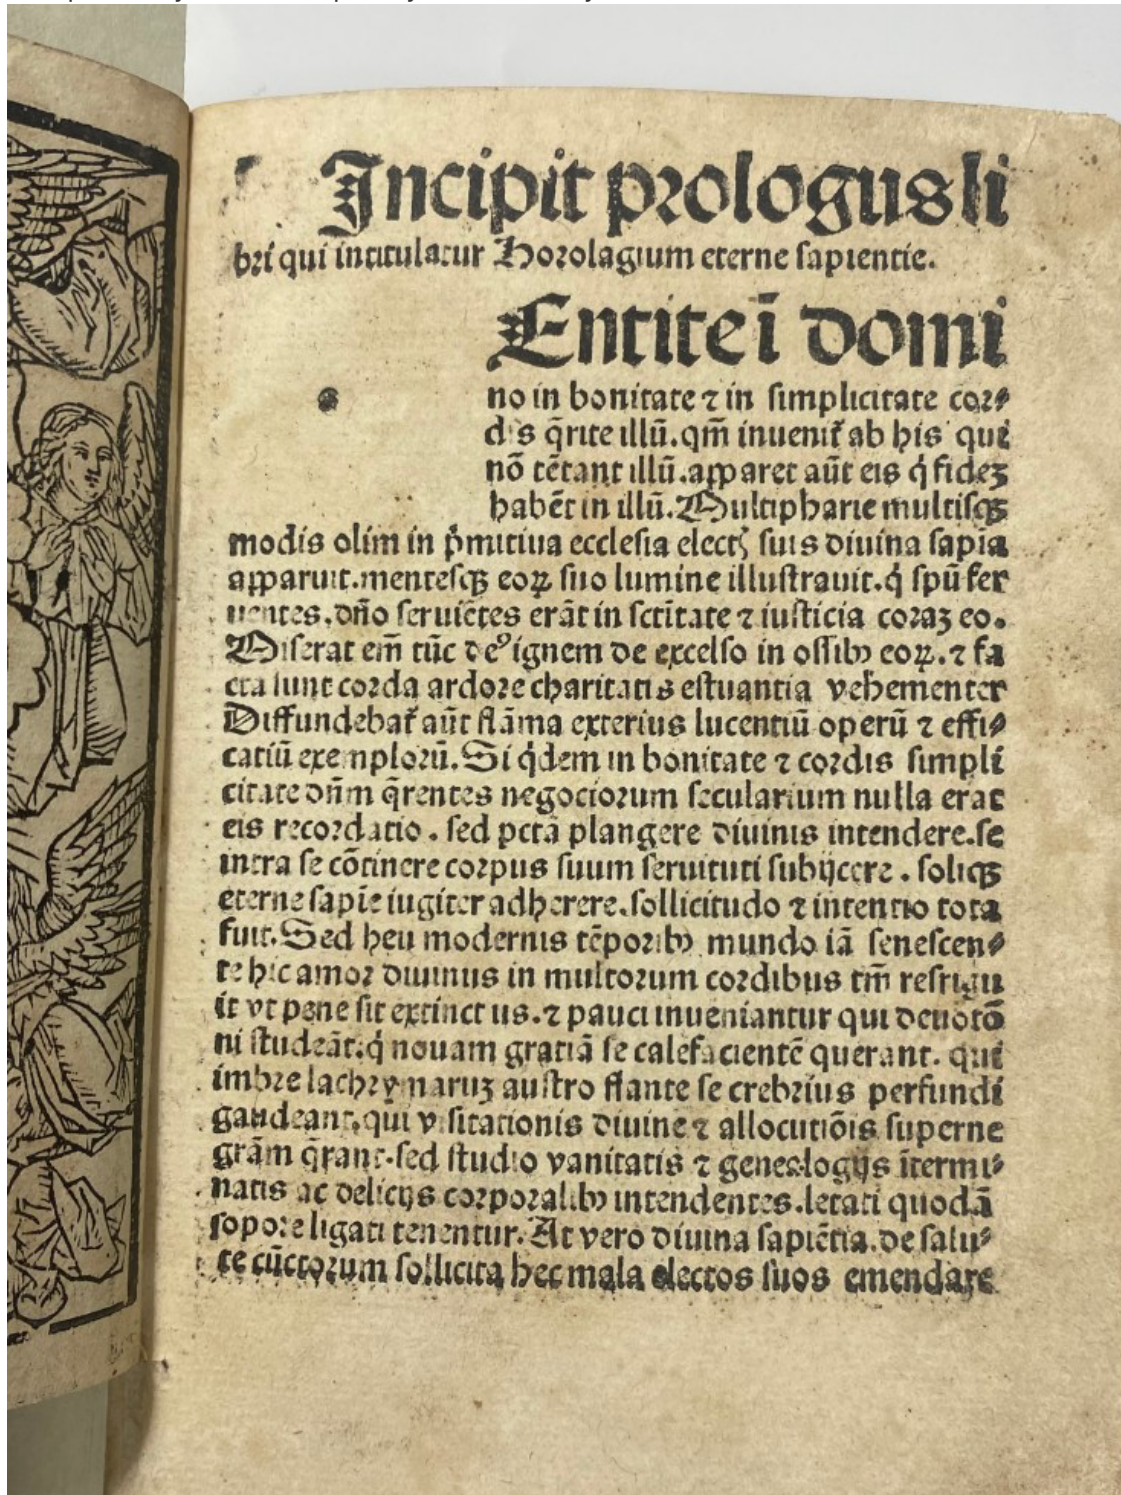 Incipit prologus li
bri qui intitulatur Horolagium eterne sapientie.
Entite ī domi
no in bonitate ⁊ in simplicitate cor⸗
dis q̄rite illū. qm̄ inuenit̄ ab his qui
nō tētant illū. apparet aūt eis q̇ fidez
habēt in illū. Multipharie multisqꝫ
modis olim in p̓mitiua ecclesia elect suis diuina sapīa
apparuit. mentesqꝫ eoꝝ suo lumine illustrauit. q̇ spū fer
uentes. dño seruiētes erāt in sctītate ⁊ iusticia coraz eo.
Miserat em̄ tūc deꝰ ignem de excelso in ossibꝫ eoꝝ. ⁊ fa
cta sunt corda ardore charitatis estuantia vehementer
Diffundebat̄ aūt flāma exterius lucentiū operū ⁊ effi⸗
catiū exemplorū. Si q̇dem in bonitate ⁊ cordis simpli
citate dñm q̄rentes negociorum secularium nulla erat
eis recordatio. sed pctā plangere diuinis intendere. se
intra se cōtinere corpus suum seruituti subijcere. soliqꝫ
eterne sapīe iugiter adherere. sollicitudo ⁊ intentio tota
fuit. Sed heu modernis tēporibꝫ mundo iā senescen⸗
te hic amor diuinus in multorum cordibus tm̄ refrigu
it vt pene sit extinct us. ⁊ pauci inueniantur qui deuotō
ni studeāt. q̇ nouam gratiā se calefacientē querant. qui
imbre lachrymaruz austro flante se crebrius perfundi
gaudeant. qui visitationis diuine ⁊ allocutiōis superne
grām q̄rant. sed studio vanitatis ⁊ genealogijs ītermi⸗
natis ac delicijs corporalibꝫ intendentes. letati quodā
sopore ligati tenentur. At vero diuina sapiētia. de salu⸗
te cūctorum sollicita hec mala electos suos emendare